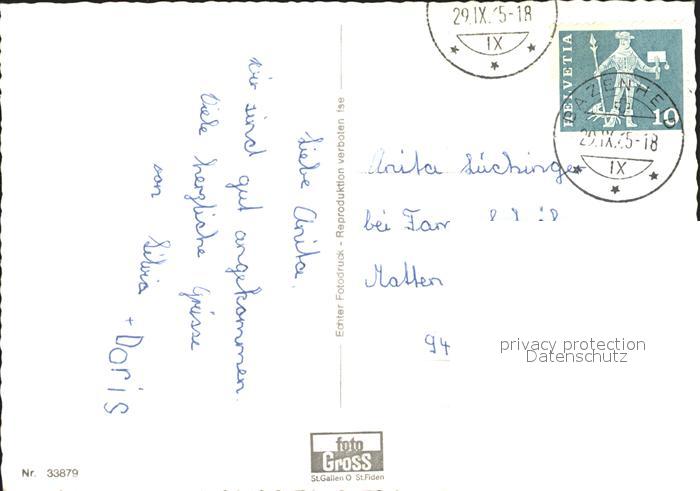 29.IX.65-18
IX
HELVETIA
10
BAZENHEID
29.IX.65-18
IX
Liebe Anita.
Wir sind gut angekommen.
Viele herzliche Grüsse
von Silvia
+ Doris
Echter Fotodruck - Reproduktion verboten Ise
Anita Lüchinger
bei Fam
Matten
94
privacy protection
Datenschutz
foto
Gross
St.Gallen O St.Fiden
Nr. 33879